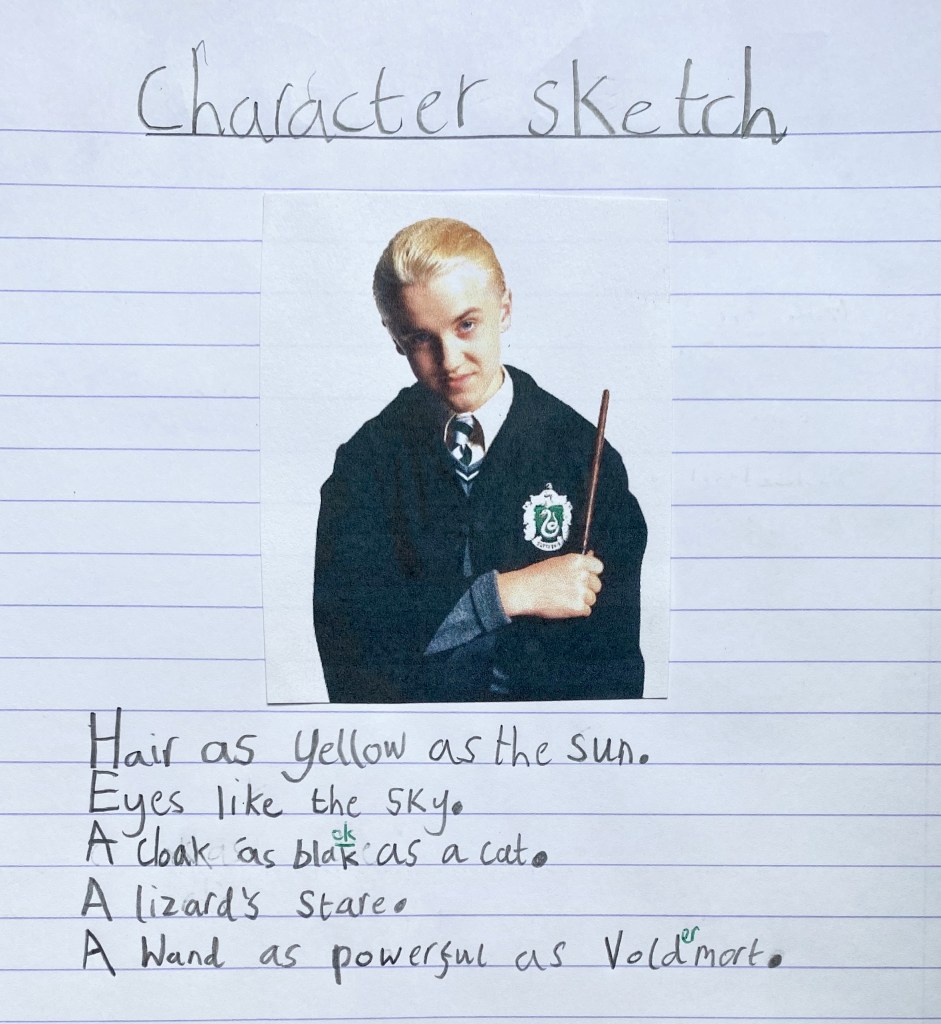 Character sketch
Hair as yellow as the sun.
Eyes like the sky.
ck
A cloak as blak as a cat.
A lizard's stare.
er
A Wand as powerful as Voldmort.